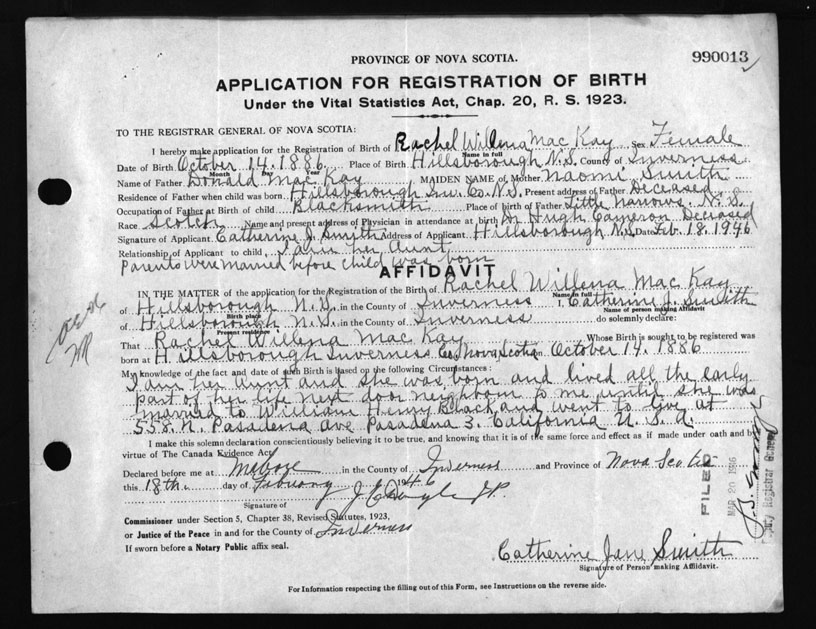 PROVINCE OF NOVA SCOTIA.
990013
APPLICATION FOR REGISTRATION OF BIRTH
Under the Vital Statistics Act, Chap. 20, R. S. 1923.
TO THE REGISTRAR GENERAL OF NOVA SCOTIA:
I hereby make application for the Registration of Birth of Rachel Willena Mac Kay Sex Female
Name in full
Date of Birth October 14. 1886 Place of Birth Hillsborough N.S. County of Inverness
Month Day Year
Name of Father Donald Mac Kay MAIDEN NAME of Mother Naomi Smith
Residence of Father when child was born Hillsborough Inv. Co. N.S. Present address of Father Deceased
Occupation of Father at Birth of child Blacksmith Place of birth of Father Little Narrows. N. S.
Race Scotch Name and present address of Physician in attendance at birth Dr Hugh Cameron Deceased
Signature of Applicant Catherine J. Smith Address of Applicant Hillsborough N.S. Date Feb. 18. 1946
Relationship of Applicant to child I am her Aunt
Parents were married before child was born
AFFIDAVIT
IN THE MATTER of the application for the Registration of the Birth of Rachel Willena Mac Kay
Name in full
of Hillsborough N. S. in the County of Inverness I, Catherine J. Smith
Birth place
Name of person making Affidavit
of Hillsborough N. S. in the County of Inverness do solemnly declare:
Present residence
That Rachel Willena Mac Kay Whose Birth is sought to be registered was
born at Hillsborough Inverness Co. Nova Scotia on October 14. 1886
My knowledge of the fact and date of such Birth is based on the following Circumstances:
I am her aunt and she was born and lived all the early
part of her life next door neighbour to me until she was
married to William Henry Black and went to live at
558. N. Pasadena ave Pasadena 3. California U. S. A.
I make this solemn declaration conscientiously believing it to be true, and knowing that it is of the same force and effect as if made under oath and by
virtue of The Canada Evidence Act.
Declared before me at in the County of Inverness and Province of Nova Scotia
this 18th. day of February 1946
Signature of
Commissioner under Section 5, Chapter 38, Revised Statutes, 1923,
or Justice of the Peace in and for the County of Inverness
If sworn before a Notary Public affix seal.
Catherine Jane Smith
Signature of Person making Affidavit.
For Information respecting the filling out of this Form, see Instructions on the reverse side.
FILED
MAR 20 1946
Deputy Registrar General